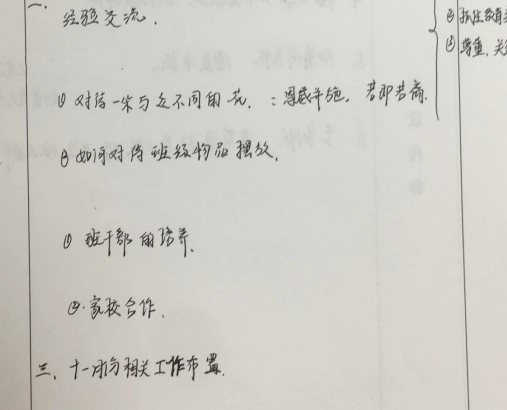 一、
经验交流.
① 对待一朵与众不同的花. : 恩威并施. 若即若离.
② 如何对待班级物品摆放.
① 班干部的培养.
②. 家校合作.
三、十一月份相关工作布置.
② 抓住教育
③ 尊重、关